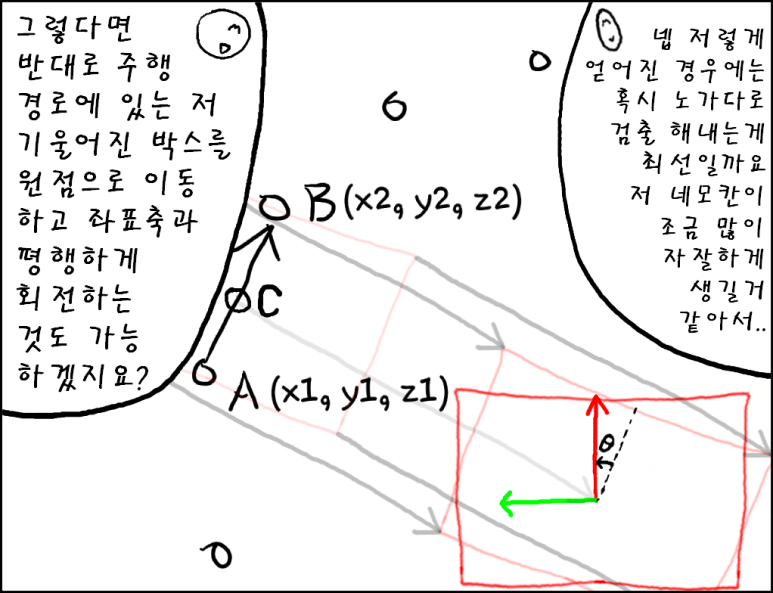 그렇다면
반대로 주행
경로에 있는 저
기울어진 박스를
원점으로 이동
하고 좌표축과
평행하게
회전하는
것도 가능
하겠지요?
넵 저렇게
얻어진 경우에는
혹시 노가다로
검출 해내는게
최선일까요
저 네모칸이
조금 많이
자잘하게
생길거
같아서..
B (x2, y2, z2)
C
A (x1, y1, z1)
θ